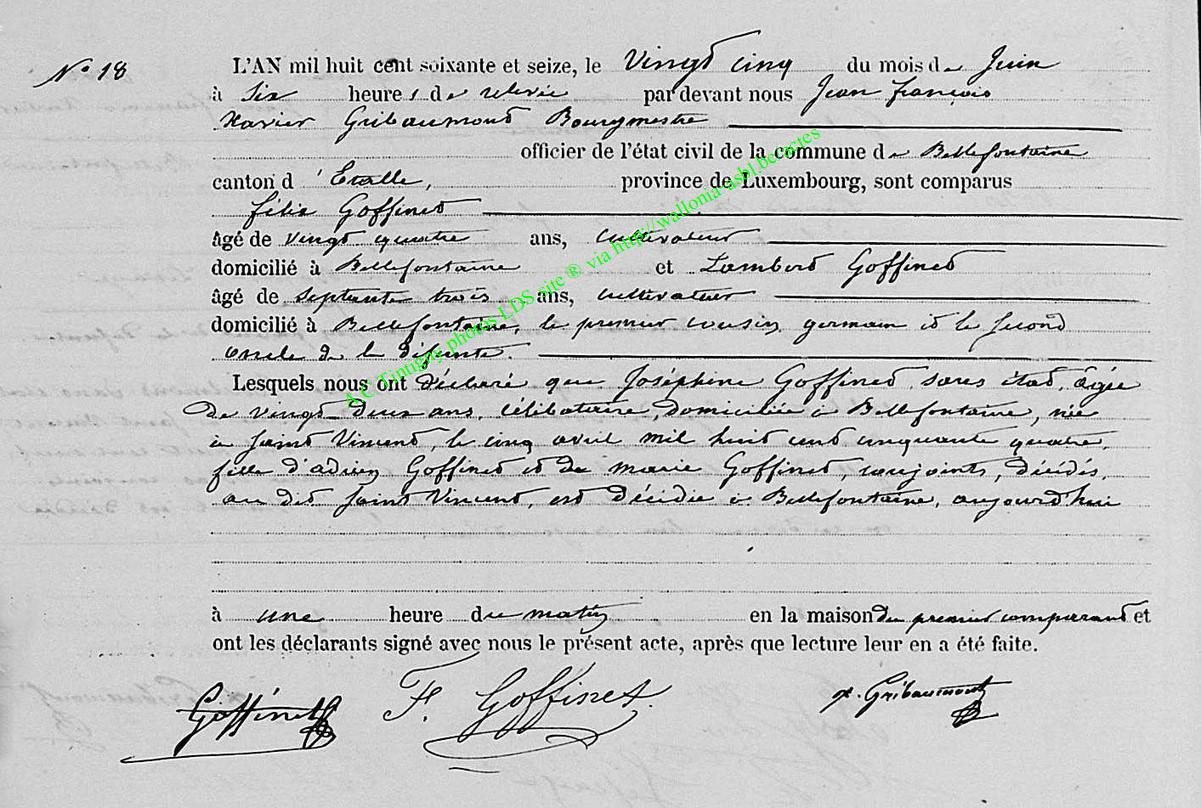 N° 18
L'AN mil huit cent soixante et seize, le Vingt cinq du mois de Juin
à six heures de relevée par devant nous Jean François
Xavier Gribaumont Bourgmestre
officier de l'état civil de la commune de Bellefontaine
canton d'Etalle, province de Luxembourg, sont comparus
Félix Goffinet
âgé de vingt quatre ans, cultivateur
domicilié à Bellefontaine et Lambert Goffinet
âgé de septante trois ans, cultivateur
domicilié à Bellefontaine, le premier cousin germain et le second
oncle de la défunte.
Lesquels nous ont déclaré que Joséphine Goffinet, sans état, âgée
de vingt-deux ans, célibataire, domiciliée à Bellefontaine, née
à Saint Vincent, le cinq avril mil huit cent cinquante quatre,
fille d'adrien Goffinet et de marie Goffinet, conjoints, décédés,
au dit Saint Vincent, est décédée à Bellefontaine, aujourd'hui
à une heure du matin en la maison du premier comparant et
ont les déclarants signé avec nous le présent acte, après que lecture leur en a été faite.
Goffinet F. Goffinet. x. Gribaumont
A.C. Tintigny photos LDS site ® via http://wallonia-asbl.be:actes